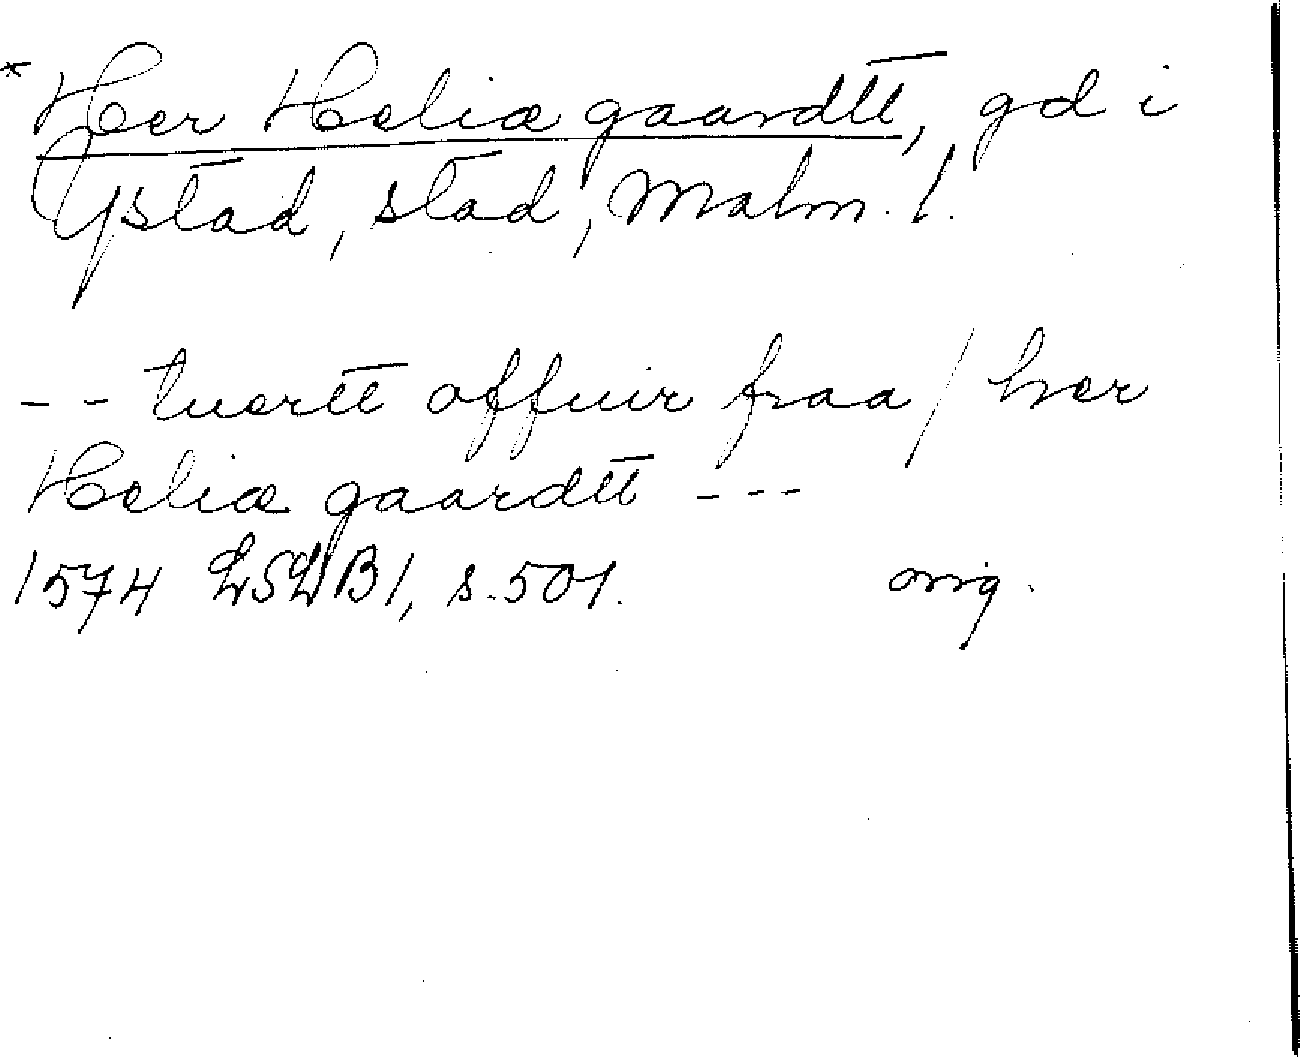 * Her Heliæ gaardtt, gd i
Ystad, stad, Malm. l.
-- tuertt offuir fraa / her
Heliæ gaardtt ---
1574 LSLB1, s. 501. orig.